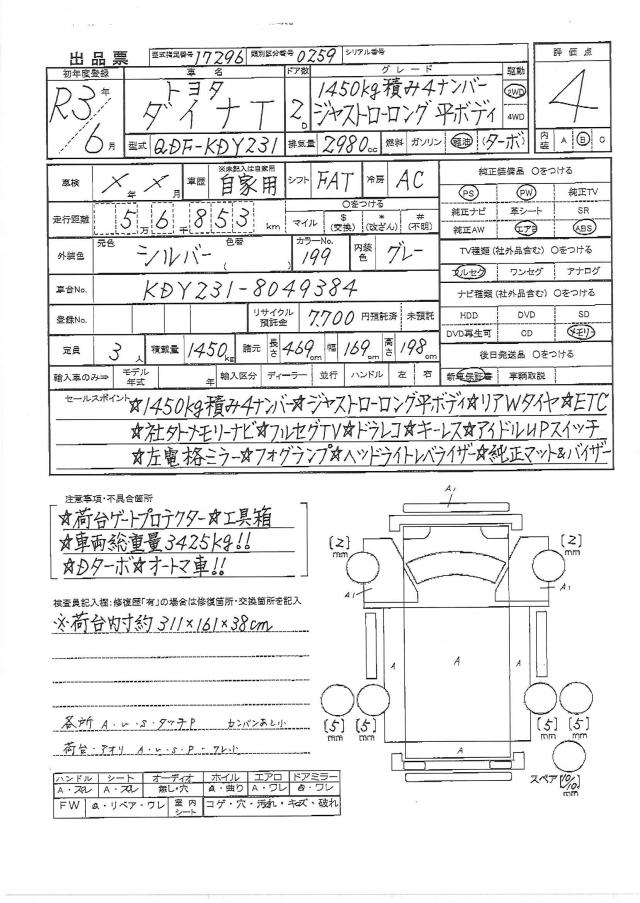 出品票 型式指定番号 17296 類別区分番号 0259 シリアル番号
初年度登録 車名 ドア数 グレード 駆動 評価点
R3年 6月 トヨタ ダイナT 2D 1450kg積み4ナンバー 2WD 4
ジャストローロング 平ボディ 4WD
型式 QDF-KDY231 排気量 2980cc 燃料 ガソリン 軽油 (ターボ) 内装 A B C
車検 ×年×月 車歴 ※未記入は自家用 自家用 シフト FAT 冷房 AC
走行距離 5万6千853km
〇をつける
マイル $(交換) *(改ざん) #(不明)
外装色 元色 シルバー 色替 ( ) カラーNo. 199 内装色 グレー
車台No. KDY231-8049384
登録No. リサイクル預託金 7,700円預託済 未預託
定員 3人 積載量 1450kg 諸元 長さ 469cm 幅 169cm 高さ 198cm
輸入車のみ⇒ モデル年式 年 輸入区分 ディーラー 並行 ハンドル 左 右
純正装備品 〇をつける
PS PW 純正TV
純正ナビ 革シート SR
純正AW エアB ABS
TV種類(社外品含む) 〇をつける
フルセグ ワンセグ アナログ
ナビ種類(社外品含む) 〇をつける
HDD DVD SD
DVD再生可 CD メモリー
後日発送品 〇をつける
新車保証書 車輌取説
セールスポイント ☆1450kg積み4ナンバー☆ジャストローロング平ボディ☆リアWタイヤ☆ETC
☆社外メモリーナビ☆フルセグTV☆ドラレコ☆キーレス☆アイドルUPスイッチ
☆左電格ミラー☆フォグランプ☆ヘッドライトレベライザー☆純正マット&バイザー
注意事項・不具合箇所
☆荷台ゲートプロテクター☆工具箱
☆車両総重量3425kg!!
☆Dターボ☆オートマ車!!
検査員記入欄:修復歴「有」の場合は修復箇所・交換箇所を記入
※荷台内寸約 311×161×38cm
各所 A・U・S・タッチP カンバンあと小
荷台・アオリ A・U・S・P・ワレ小
ハンドル シート オーディオ ホイル エアロ ドアミラー
A・スレ A・スレ 無し・穴 A・曲り A・ワレ A・ワレ
FW A・リペア・ワレ 室内シート コゲ・穴・汚れ・キズ・破れ
A1
[2]mm [2]mm
A1 A1
A A A
[5]mm [5]mm [5]mm [5]mm
A
スペア (10/10)mm